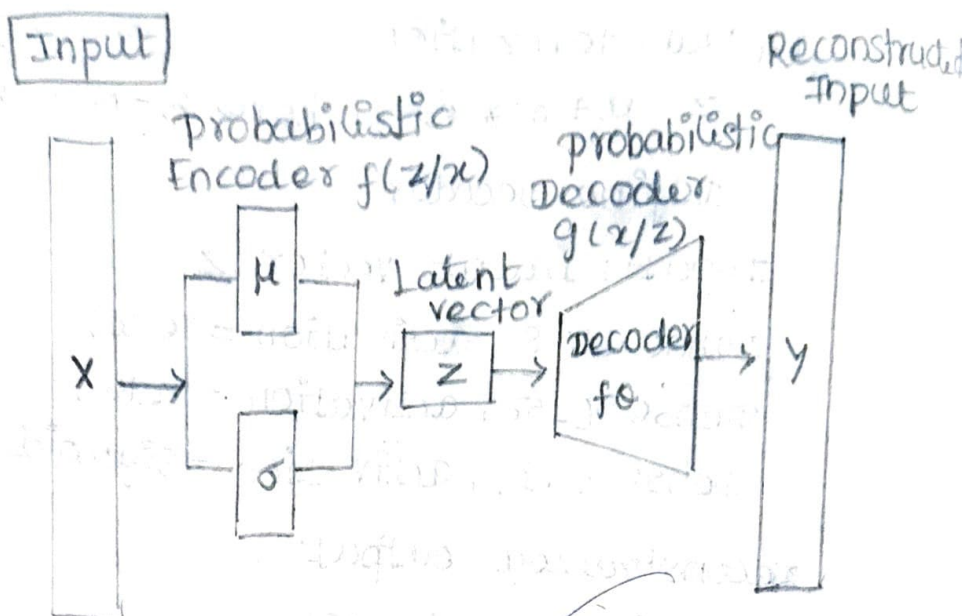 Input
Reconstructed
Input
Probabilistic
Encoder f(z/x)
probabilistic
Decoder
g(x/z)
μ
Latent
vector
X
Z
Decoder
fθ
Y
σ